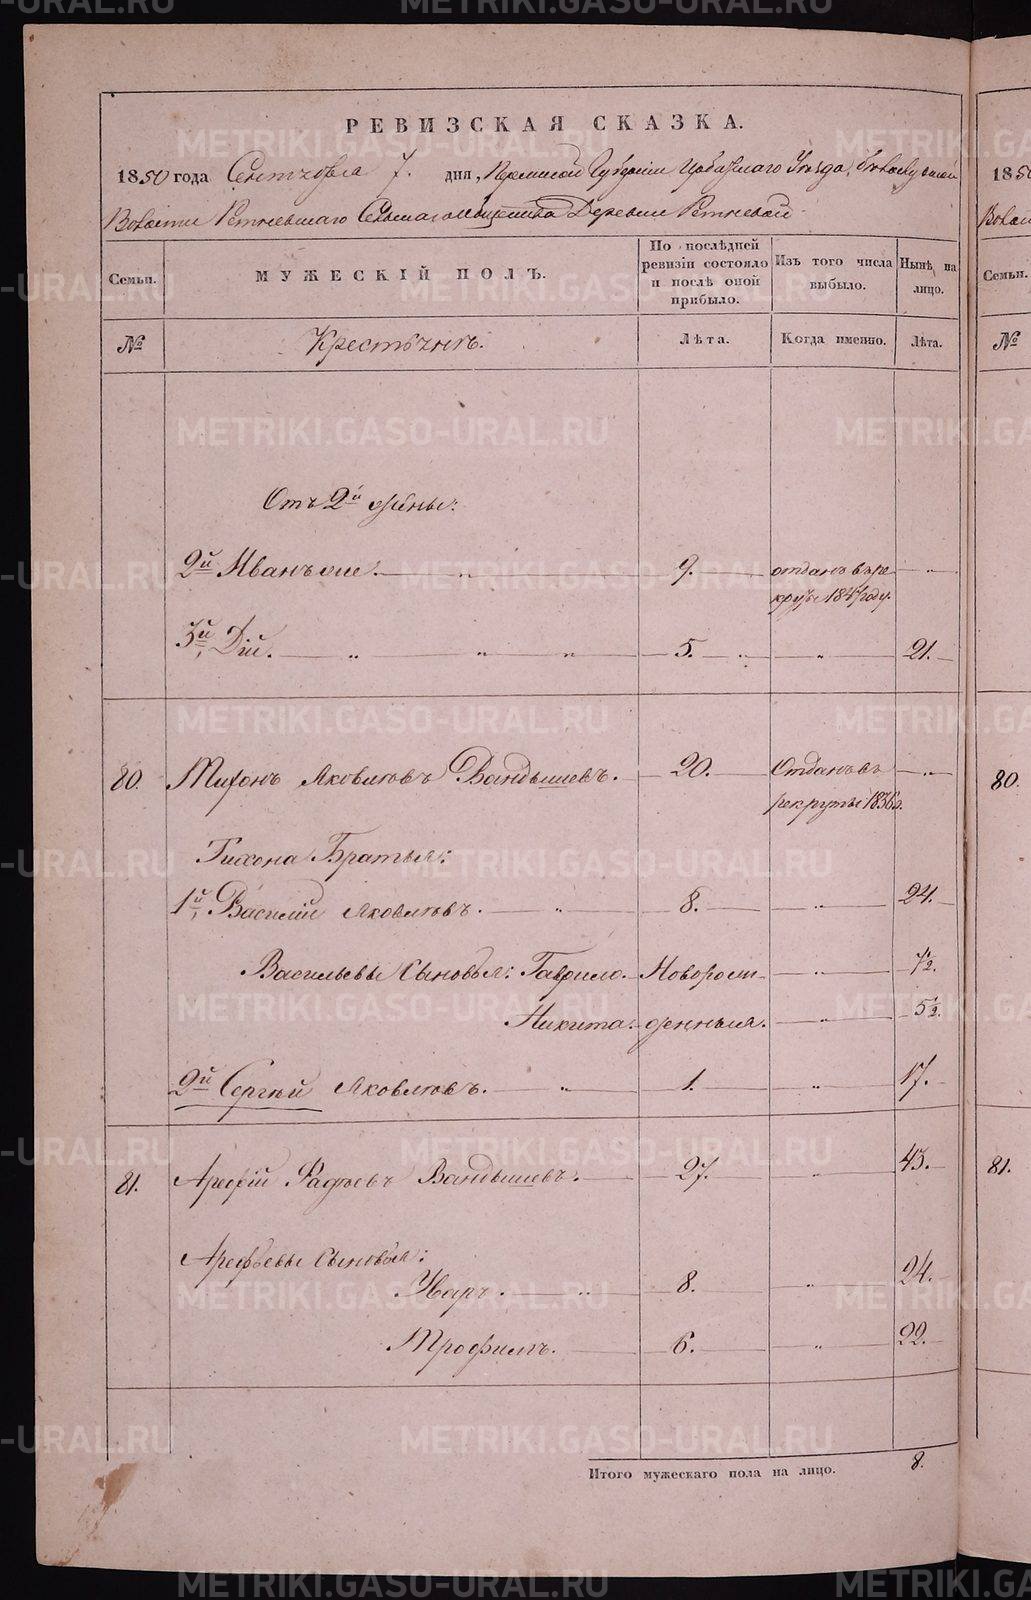 РЕВИЗСКАЯ СКАЗКА.
1850 года Сентября 7. дня, Пермской Губернии Ирбитскаго Уезда,
Волости Ретневскаго Сельскаго Деревни Ретневой
Семьи. МУЖЕСКІЙ ПОЛЪ. По послѣдней ревизіи состояло и послѣ оной прибыло. Изъ того числа выбыло. Нынѣ на лицо.
№ Крестьянъ. Лѣта. Когда именно. Лѣта.
Отъ 2й жены:
2й Иванъ 9. отданъ въ ре
круты 1847 году.
3й, Дій. 5. 21.
80. Тихонъ Яковлевъ Вандышевъ. 20. Отданъ въ
рекруты 1836г.
Тихона Братья:
1й, Василій Яковлевъ. 8. 24.
Васильевы Сыновья: Гаврило. Новорож 7½.
Никита. денныя. 5½.
2й Сергѣй Яковлевъ. 1. 17.
81. Арефій Фадѣевъ Вандышевъ. 27. 43.
Арефьевы Сыновья:
Уаръ. 8. 24.
Трофимъ. 6. 22.
Итого мужескаго пола на лицо. 8.
1850
Волос
Семьи.
№
80.
81.
METRIKI.GASO-URAL.RU